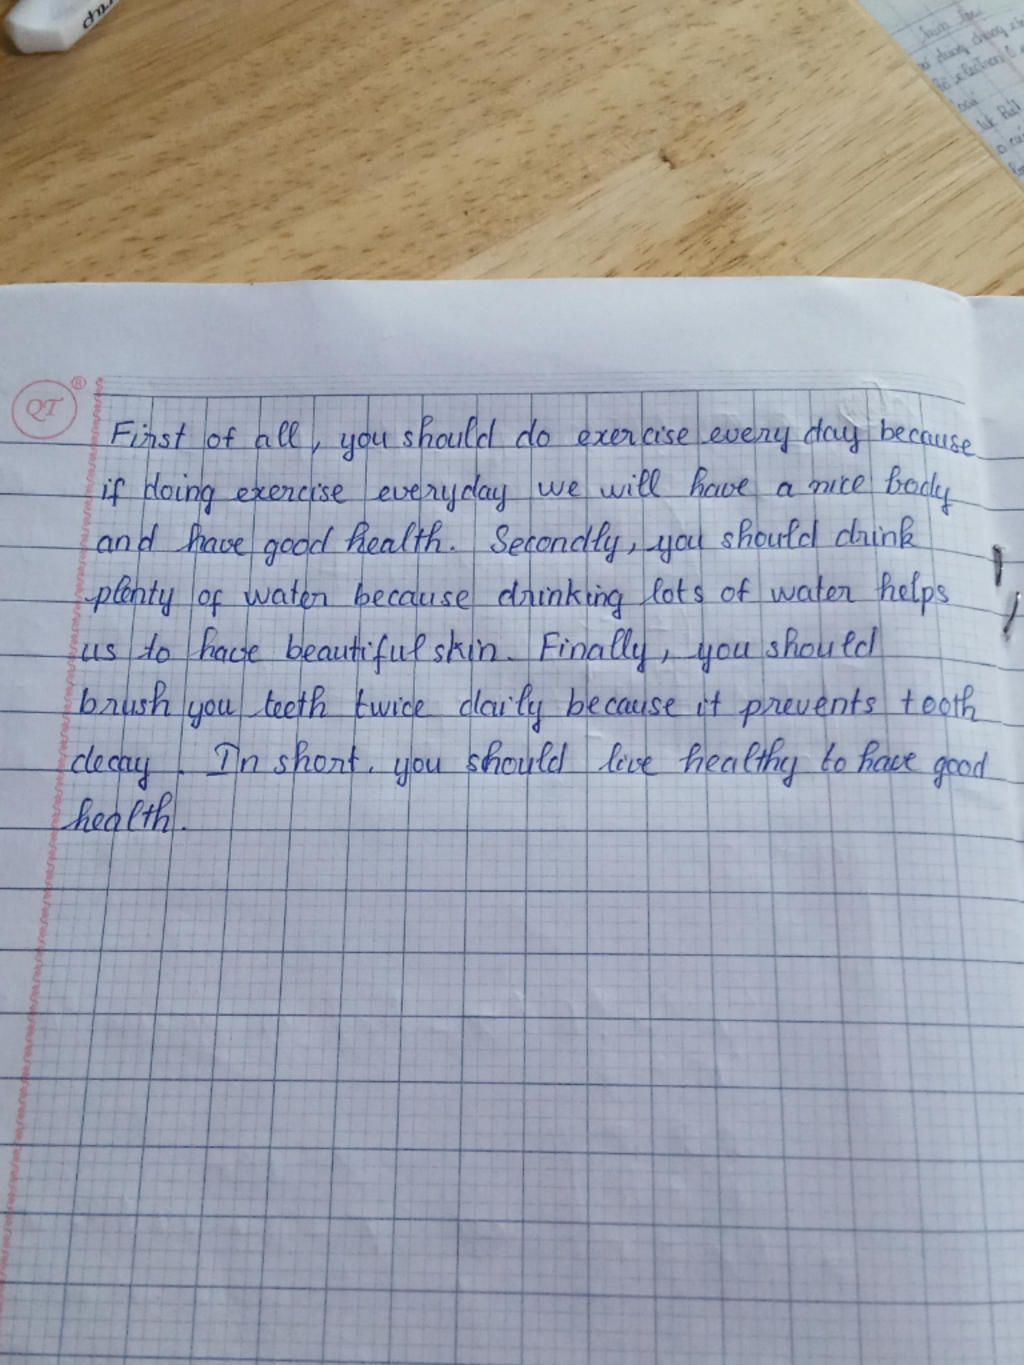 QT
®
First of all, you should do exercise every day because
if doing exercise everyday we will have a nice body
and have good health. Secondly, you should drink
plenty of water because drinking lots of water helps
us to have beautiful skin. Finally, you should
brush you teeth twice daily because it prevents tooth
decay. In short, you should live healthy to have good
health.